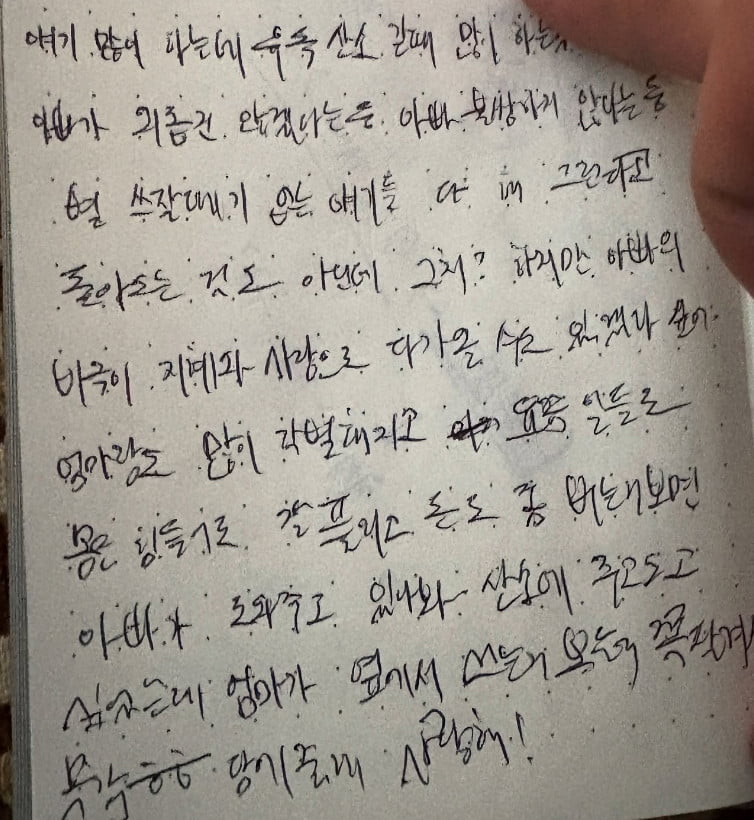 얘기 많이 하는데 유독 산소 갈때 많이 하는
아빠가 괴롭진 않겠다는둥 아빠 불쌍하지 않냐는둥
별 쓰잘데기 없는 얘기들 다 해 그런다고
돌아오는 것도 아닌데 그치? 하지만 아빠의
지혜와 사랑으로 다가올 수도 있겠다 싶어
엄마랑도 많이 각별해지고 요즘 일들로
몸은 힘들어도 잘 풀리고 돈도 좀 버는데 보면
아빠가 도와주고 있나봐 산소에 두고오고
싶었는데 엄마가 옆에서 쓰는거 보는거
땅에 줄게 사랑해!